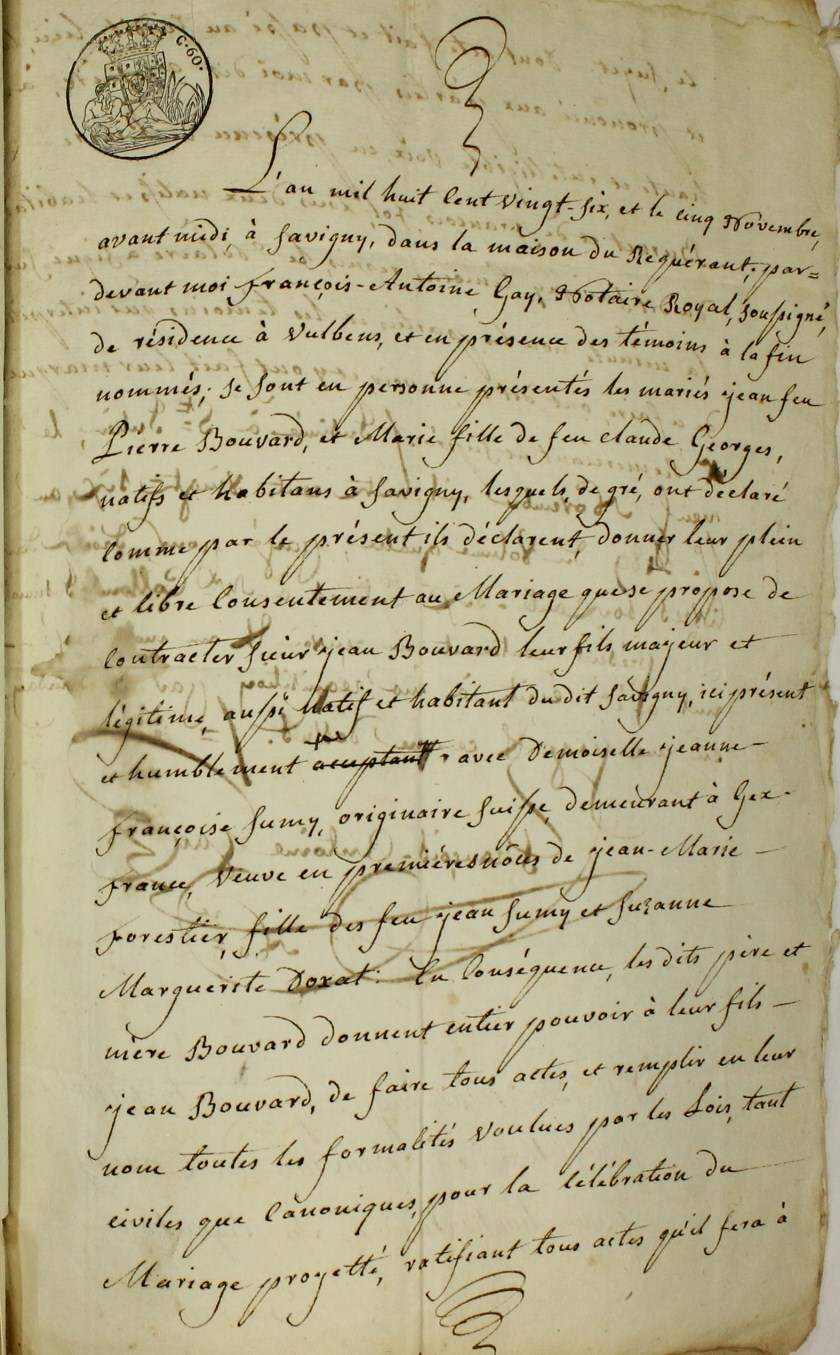 C. 60.
L'an mil huit Cent vingt-six, et le cinq Novembre,
avant midi, à Savigny, dans la maison du Réquérant, par=
devant moi françois-Antoine Gay, Notaire Royal, soussigné,
de résidence à Vulbens, et en présence des témoins à la fin
nommés; se sont en personne présentés les mariés jean feu
Pierre Bouvard, et Marie fille de feu claude Georges,
natifs et habitans à Savigny, lesquels, de gré, ont déclaré
Comme par le présent ils déclarent, donner leur plein
et libre Consentement au Mariage que se propose de
Contracter sieur jean Bouvard leur fils majeur et
légitime, aussi natif et habitant du dit Savigny, ici présent
et humblement acceptant, avec Demoiselle jeanne-
françoise Sumy, originaire suisse, demeurant à Gex-
france, veuve en premières nôces de jean-Marie -
forestier, fille des feu jean Sumy et Suzanne
Marguerite Doxat. En Conséquence, les dits père et
mère Bouvard donnent entier pouvoir à leur fils -
jean Bouvard, de faire tous actes, et remplir en leur
nom toutes les formalités voulues par les Lois, tant
civiles que Canoniques, pour la Célébration du
Mariage proyetté, ratifiant tous actes qu'il fera à